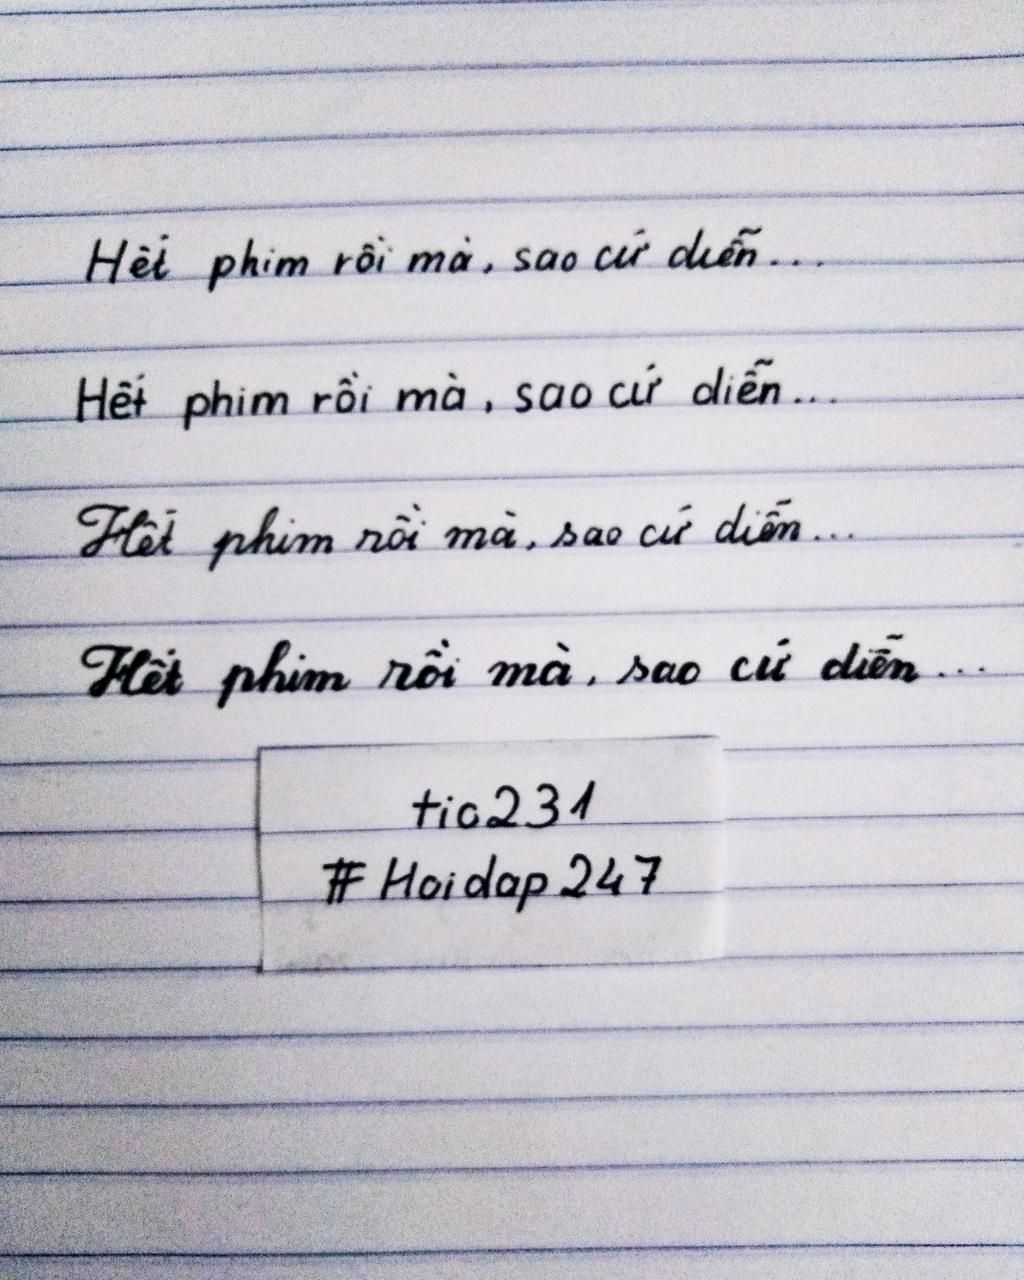 Hết phim rồi mà, sao cứ diễn...
Hết phim rồi mà, sao cứ diễn...
Hết phim rồi mà, sao cứ diễn...
Hết phim rồi mà, sao cứ diễn...
tic231
#Hoidap247